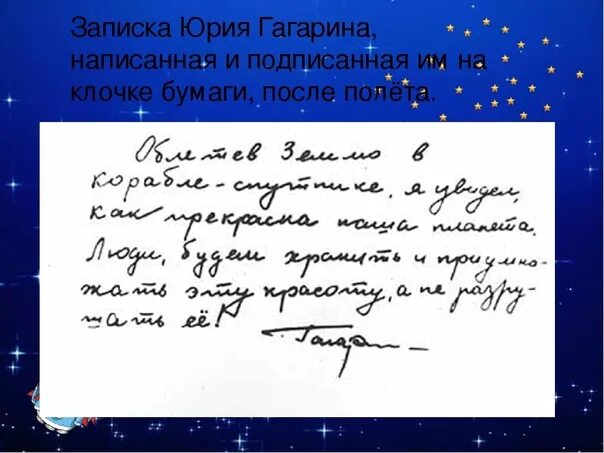 Записка Юрия Гагарина,
написанная и подписанная им на
клочке бумаги, после полёта.
Облетев Землю в
корабле-спутнике, я увидел,
как прекрасна наша планета.
Люди, будем хранить и приумно-
жать эту красоту, а не разру-
шать её!
Гагарин